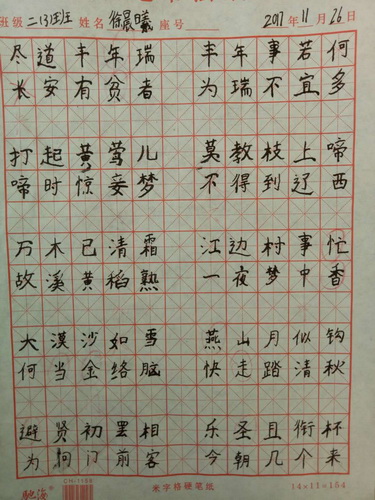 班级 二13班 姓名 徐晨曦 座号 2017年11月26日
尽道丰年瑞 丰年事若何
长安有贫者 为瑞不宜多
打起黄莺儿 莫教枝上啼
啼时惊妾梦 不得到辽西
万木已清霜 江边村事忙
故溪黄稻熟 一夜梦中香
大漠沙如雪 燕山月似钩
何当金络脑 快走踏清秋
避贤初罢相 乐圣且衔杯
为问门前客 今朝几个来
驰海 CH-1159 米字格硬笔纸 14×11×154